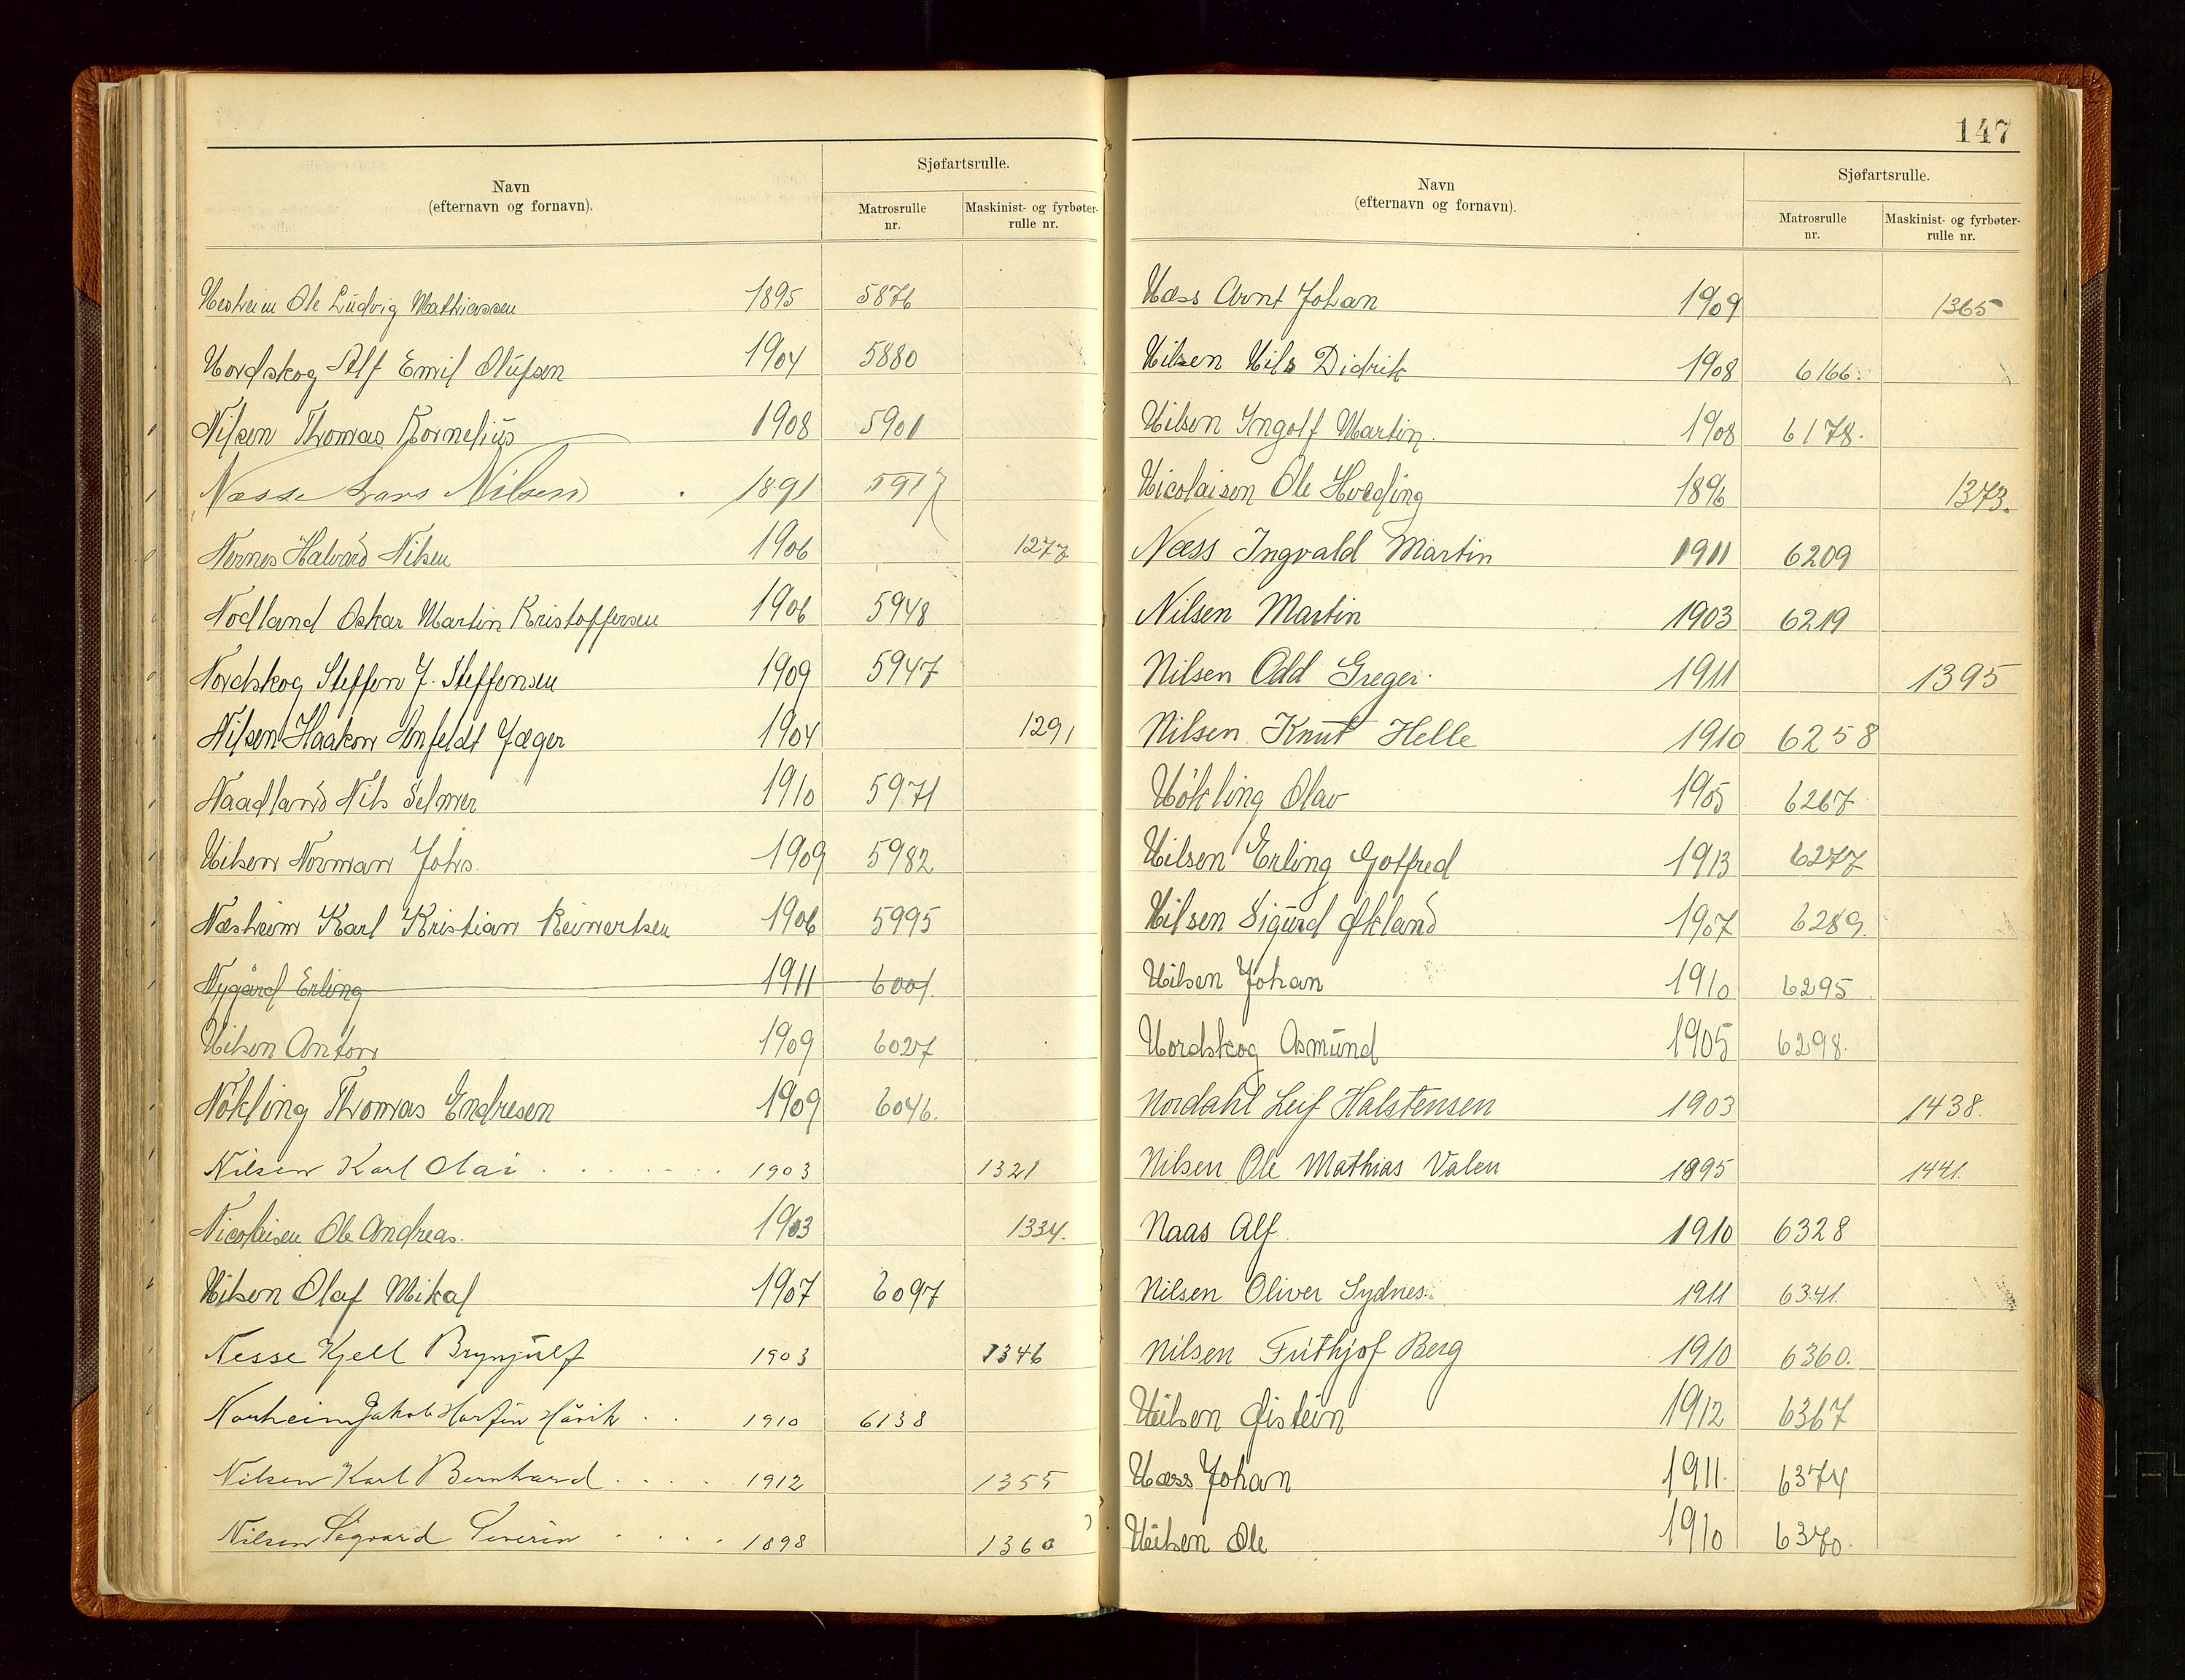 147
Sjøfartsrulle.
Navn
(efternavn og fornavn).
Matrosrulle
nr.
Maskinist- og fyrbøter-
rulle nr.
Nesheim Ole Ludvig Mathiassen 1895 5876
Nordskog Alf Emil Olufsen 1904 5880
Nilsen Thomas Kornelius 1908 5901
Næsse Lars Nilsen 1891 5917
Nernes Halvard Nilsen 1906 1277
Nodland Oskar Martin Kristoffersen 1906 5948
Nordskog Steffen J. Steffensen 1909 5947
Nilsen Haakon Jæger 1904 1291
Naadland Nils Selmer 1910 5971
Nilsen Norman Johs. 1909 5982
Næsheim Karl Kristian Reinertsen 1906 5995
Nygård Erling 1911 6001.
Nilsen Anton 1909 6027
Nökling Thomas Endresen 1909 6046.
Nilsen Karl Olai 1903 1321
Nicolaisen Ole Andreas. 1903 1334.
Nilsen Olaf Mikal 1907 6097
Nesse Kjell Brynjulf 1903 1346
Norheim Jakob Hårvik 1910 6138
Nilsen Karl Bernhard 1912 1355
Nilsen Sigvard Severin 1898 1360
Sjøfartsrulle.
Navn
(efternavn og fornavn).
Matrosrulle
nr.
Maskinist- og fyrbøter-
rulle nr.
Næss Arnt Johan 1909 1365
Nilsen Nils Didrik 1908 6166.
Nilsen Ingolf Martin. 1908 6178.
Nicolaisen Ole Hveding 1896 1373.
Næss Ingvald Martin 1911 6209
Nilsen Martin 1903 6219
Nilsen Odd Greger. 1911 1395
Nilsen Knut Helle 1910 6258
Nökling Olav 1905 6267
Nilsen Erling Gotfred 1913 6277
Nilsen Sigurd Økland 1907 6289.
Nilsen Johan 1910 6295
Nordskog Asmund 1905 6298.
Nordahl Leif Halstensen 1903 1438.
Nilsen Ole Mathias Valen 1895 1441.
Naas Alf 1910 6328
Nilsen Oliver Sydnes. 1911 6341.
Nilsen Frithjof Berg 1910 6360.
Nilsen Øistein 1912 6367
Næss Johan 1911. 6374
Nilsen Ole 1910 6370.